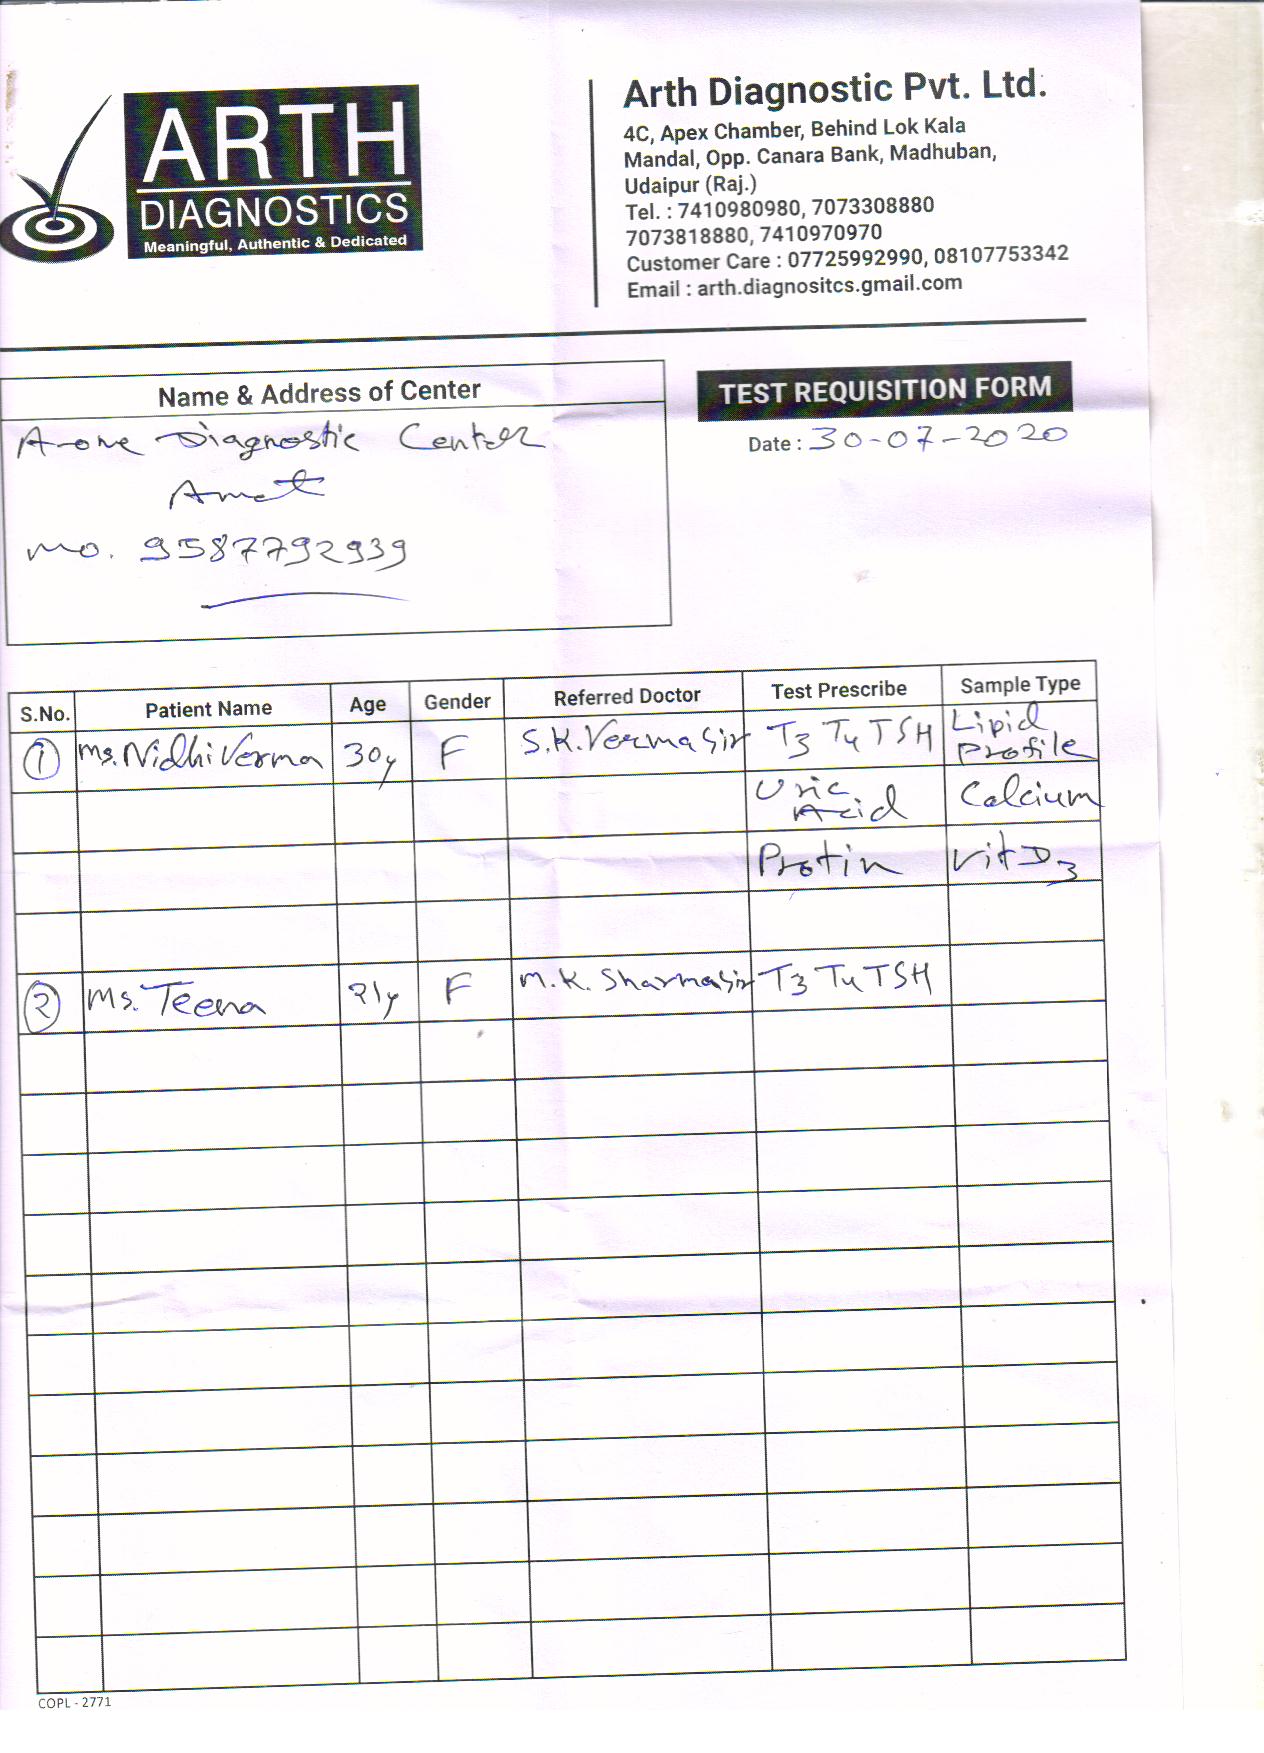 ARTH
DIAGNOSTICS
Meaningful, Authentic & Dedicated
Arth Diagnostic Pvt. Ltd.
4C, Apex Chamber, Behind Lok Kala
Mandal, Opp. Canara Bank, Madhuban,
Udaipur (Raj.)
Tel. : 7410980980, 7073308880
7073818880, 7410970970
Customer Care : 07725992990, 08107753342
Email : arth.diagnositcs.gmail.com
Name & Address of Center
A-one Diagnostic Center
Amet
mo. 9587792939
TEST REQUISITION FORM
Date : 30-07-2020
S.No. Patient Name Age Gender Referred Doctor Test Prescribe Sample Type
1 Ms. Nidhi Verma 30y F S.K. Verma Sir T3 T4 TSH Lipid Profile
Uric Acid Calcium
Protin Vit D3
2 Ms. Teena 21y F M.K. Sharma Sir T3 T4 TSH
COPL - 2771